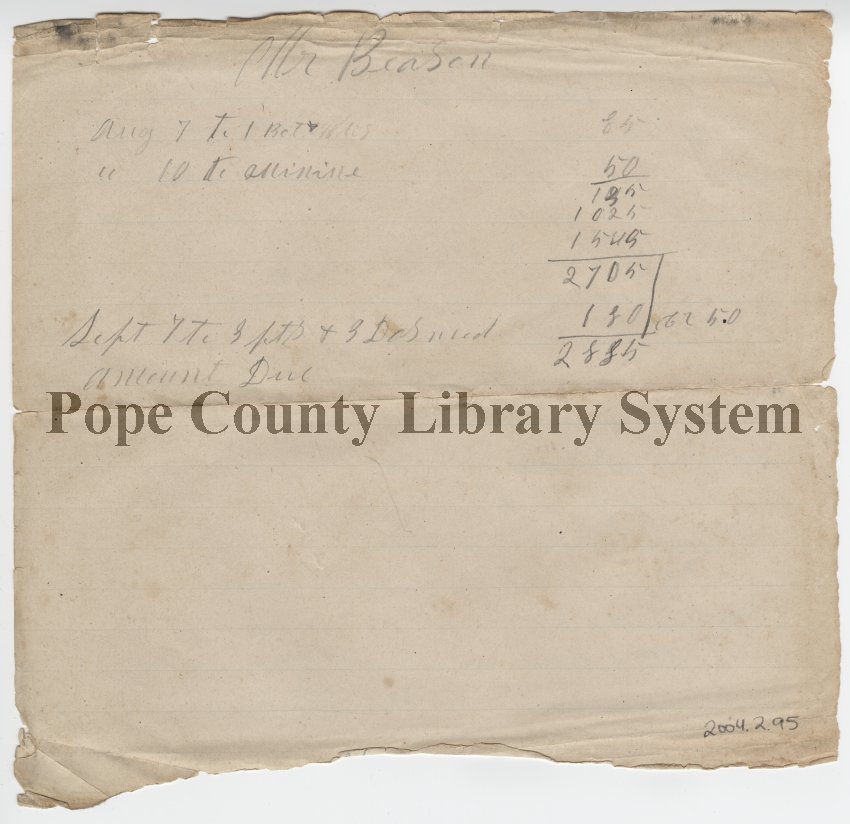 Mr Beason
Aug 7 to 1 Bot 85
" 10 to Quinine 50
135
1025
1545
2705
Sept 7 to 3 pts & 3 Dos med 180
2885
Amount Due
Pope County Library System
2004.2.95